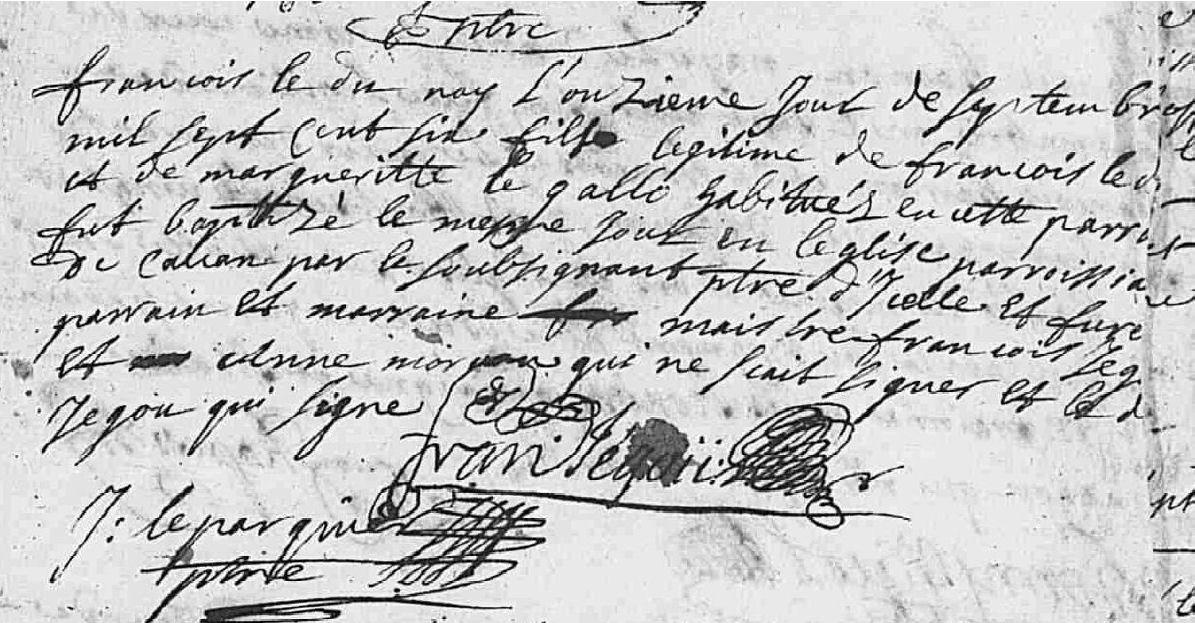 ptre
francois le du nay L'onzieme Jour de septembre
mil sept cent six fils legitime de francois le d
et de margueritte le gallo habitués en cette parrois
fut baptizé le mesme Jour en leglise parroissia
De Cauan par le soubsignant ptre d'Icelle Et fure
parrain Et marraine maistre francois Jeg
Et Anne morvan qui ne scait signer et le d
Jegou qui signe
fran: Jegou:
J: leparquier
ptre